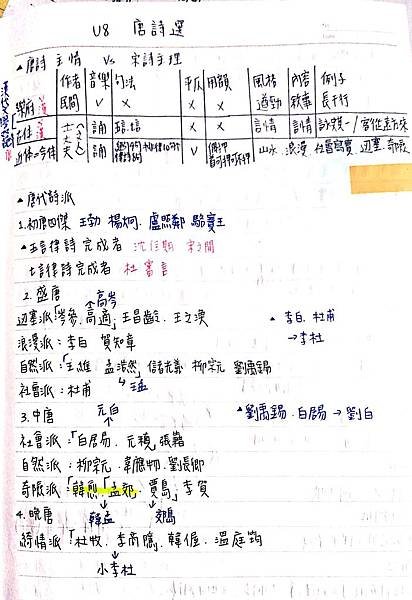 U8 唐詩選
▲唐詩主情 Vs 宋詩主理
作者 音樂 句法 平仄 用韻 風格 內容 例子
樂府 漢 民間 V × × × 遒勁 敘事 長干行
古体 漢 士大夫(文人) 誦 × × 言情 詠
近体=今体 誦 V 山水、浪漫、社會寫實、邊塞、奇險
▲唐代詩派
1.初唐四傑 王勃 楊炯 盧照鄰 駱賓王
▲五言律詩完成者 沈佺期 宋之問
七言律詩完成者 杜審言
2.盛唐 高岑
邊塞派「岑參、高適」王昌齡、王之渙
浪漫派:李白 賀知章
▲李白、杜甫
→李杜
自然派:「王維 孟浩然」儲光羲 柳宗元 劉禹錫
社會派:杜甫 王孟
3.中唐 元白
▲劉禹錫、白居易→劉白
社會派:「白居易、元稹」張籍
自然派:柳宗元、韋應物、劉長卿
奇險派:「韓愈「孟郊、賈島」李賀
4.晚唐 韓孟 郊島
綺情派「杜牧、李商隱」韓偓、溫庭筠
小李杜